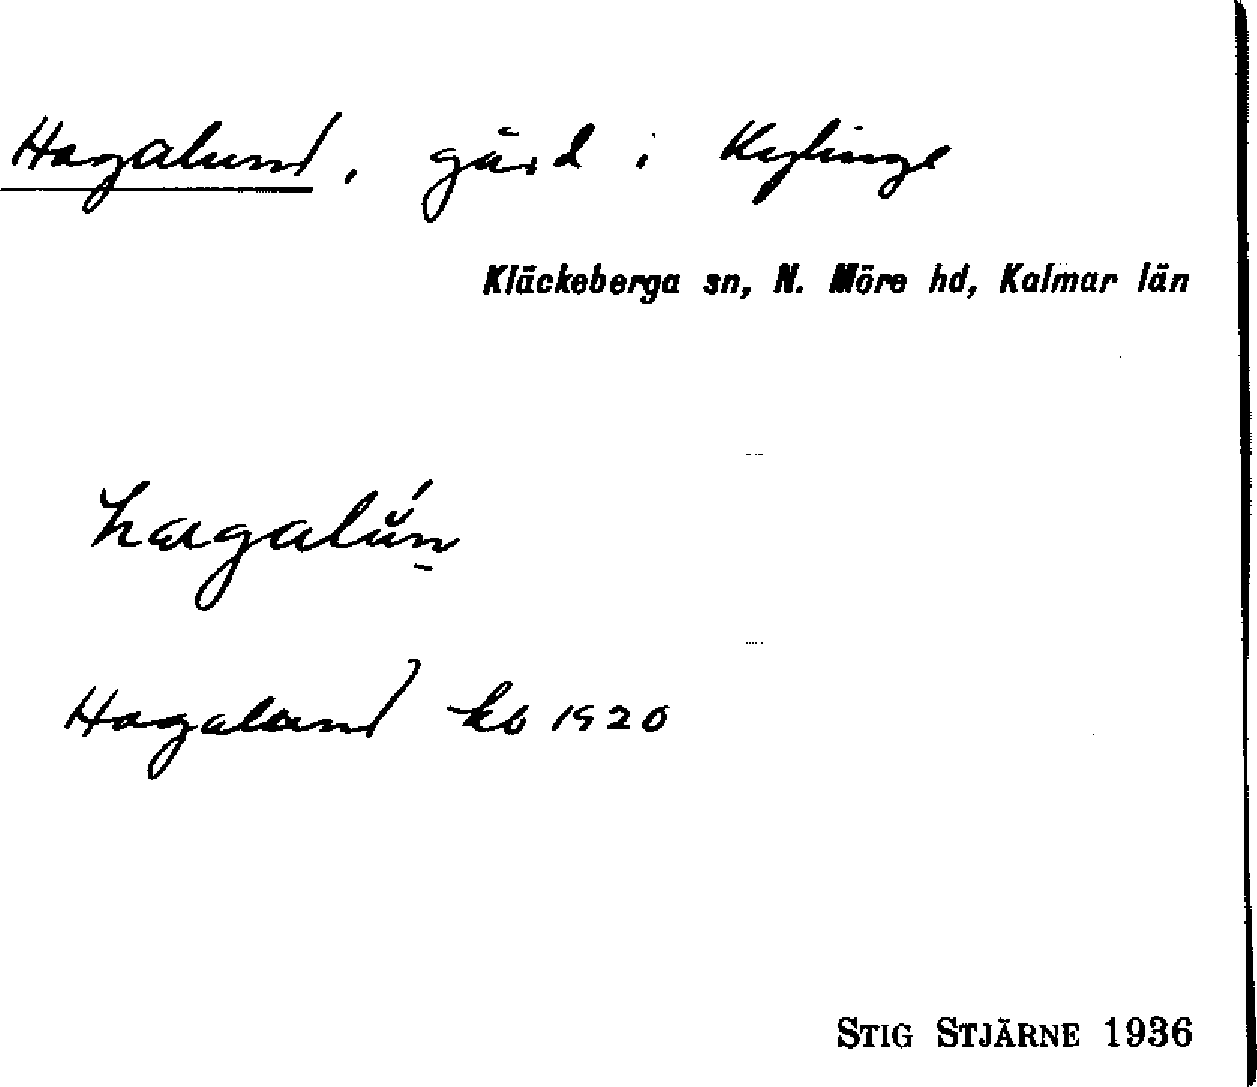 Hagalund, gård i Kylinge
Kläckeberga sn, N. Möre hd, Kalmar län
Hagalund kb 1920
STIG STJÄRNE 1936